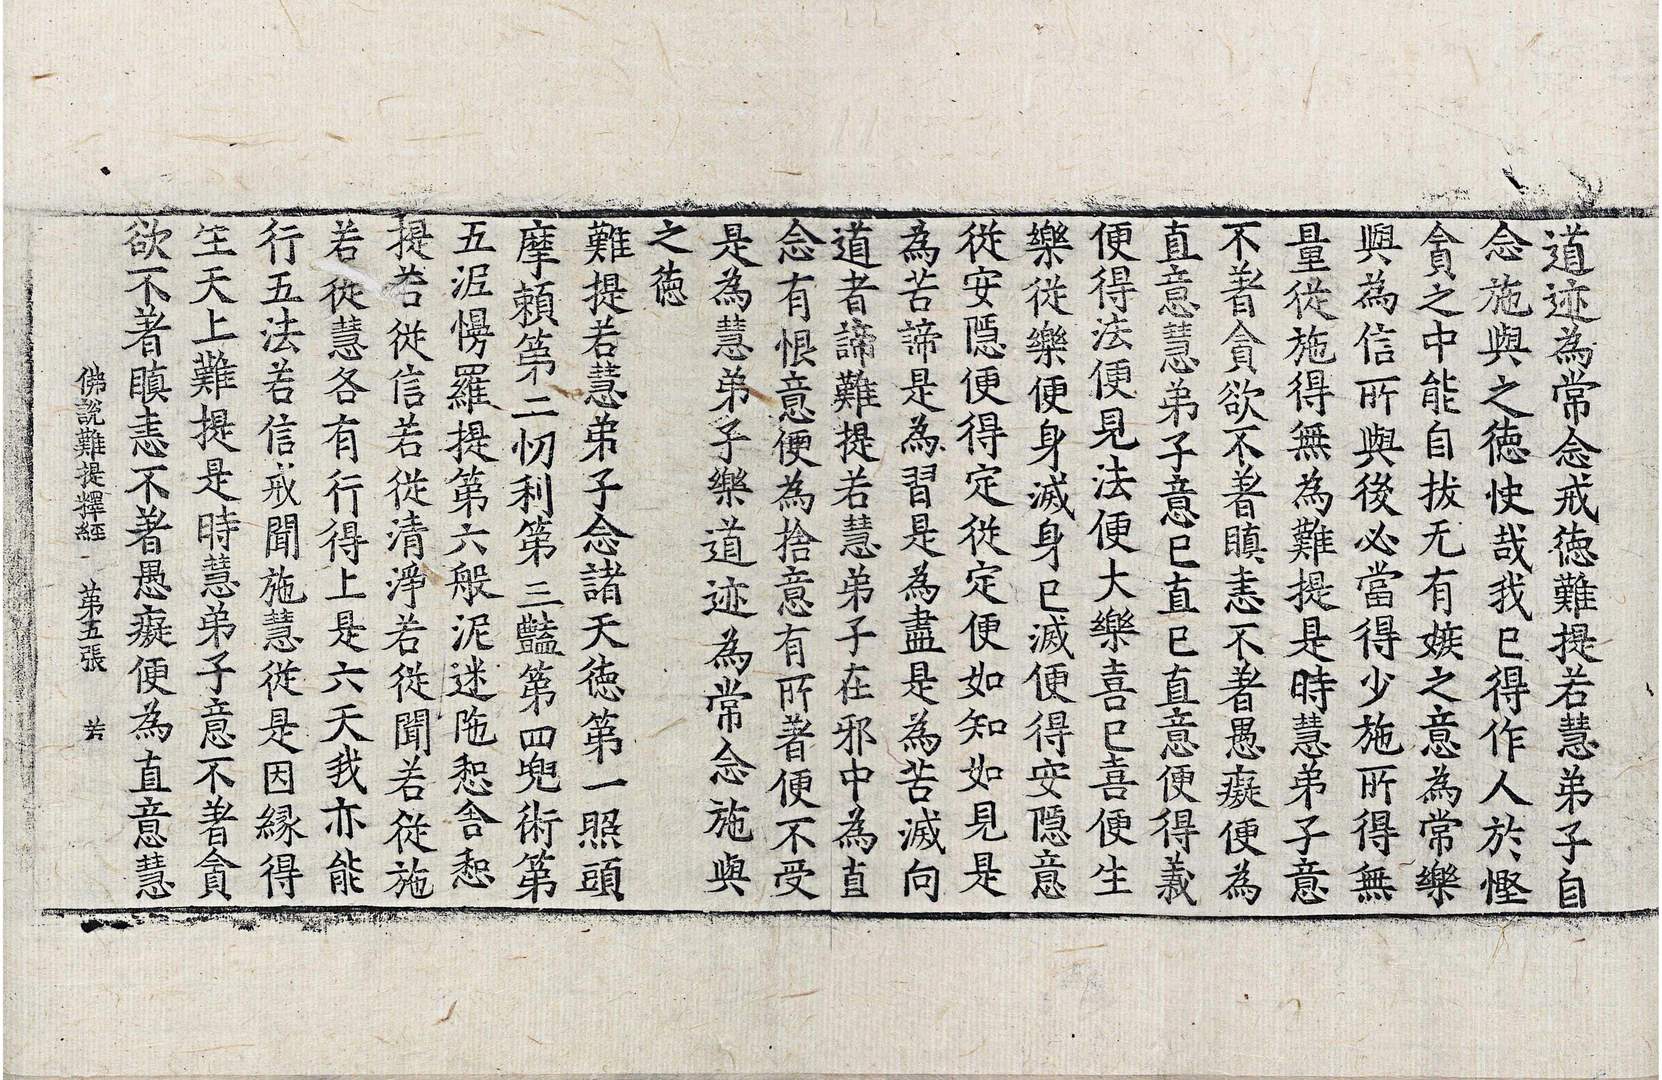 道迹為常念戒徳難提若慧弟子自
念施與之徳快哉我已得作人於慳
貪之中能自拔无有嫉之意為常樂
與為信所與後必當得少施所得無
量從施得無為難提是時慧弟子意
不著貪欲不著瞋恚不著愚癡便為
直意慧弟子意已直已直意便得義
便得法便見法便大樂喜已喜便生
樂從樂便身滅身已滅便得安隱意
從安隱便得定從定便如知如見是
為苦諦是為習是為盡是為苦滅向
道者諦難提若慧弟子在邪中為直
念有恨意便為捨意有所著便不受
是為慧弟子樂道迹為常念施與
之徳
難提若慧弟子念諸天徳第一照頭
摩賴第二忉利第三豔第四兜術第
五泥慢羅提第六般泥迷陁惒舍惒
提若從信若從清淨若從聞若從施
若從慧各有行得上是六天我亦能
行五法若信戒聞施慧從是因縁得
生天上難提是時慧弟子意不著貪
欲不著瞋恚不著愚癡便為直意慧
佛說難提釋經 第五張 若